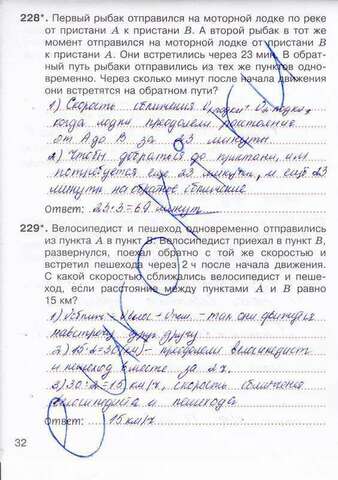 228*. Первый рыбак отправился на моторной лодке по реке
от пристани A к пристани B. А второй рыбак в тот же
момент отправился на моторной лодке от пристани B
к пристани A. Они встретились через 23 мин. В обрат-
ный путь рыбаки отправились из тех же пунктов одно-
временно. Через сколько минут после начала движения
они встретятся на обратном пути?
1) Скорость сближения
когда лодки преодолели расстояние
от A до B за 23 минуты
2) Чтобы добраться до пристани, им
потребуется еще 23 минуты, и ещё 23
минуты на обратное сближение
Ответ: 23·3=69 минут
229*. Велосипедист и пешеход одновременно отправились
из пункта A в пункт B. Велосипедист приехал в пункт B,
развернулся, поехал обратно с той же скоростью и
встретил пешехода через 2 ч после начала движения.
С какой скоростью сближались велосипедист и пеше-
ход, если расстояние между пунктами A и B равно
15 км?
навстречу друг другу
2) 15·2=30 (км) - преодолели велосипедист
и пешеход вместе за 2ч.
3) 30:2=15 км/ч, скорость сближения
велосипедиста и пешехода
Ответ: 15 км/ч
32